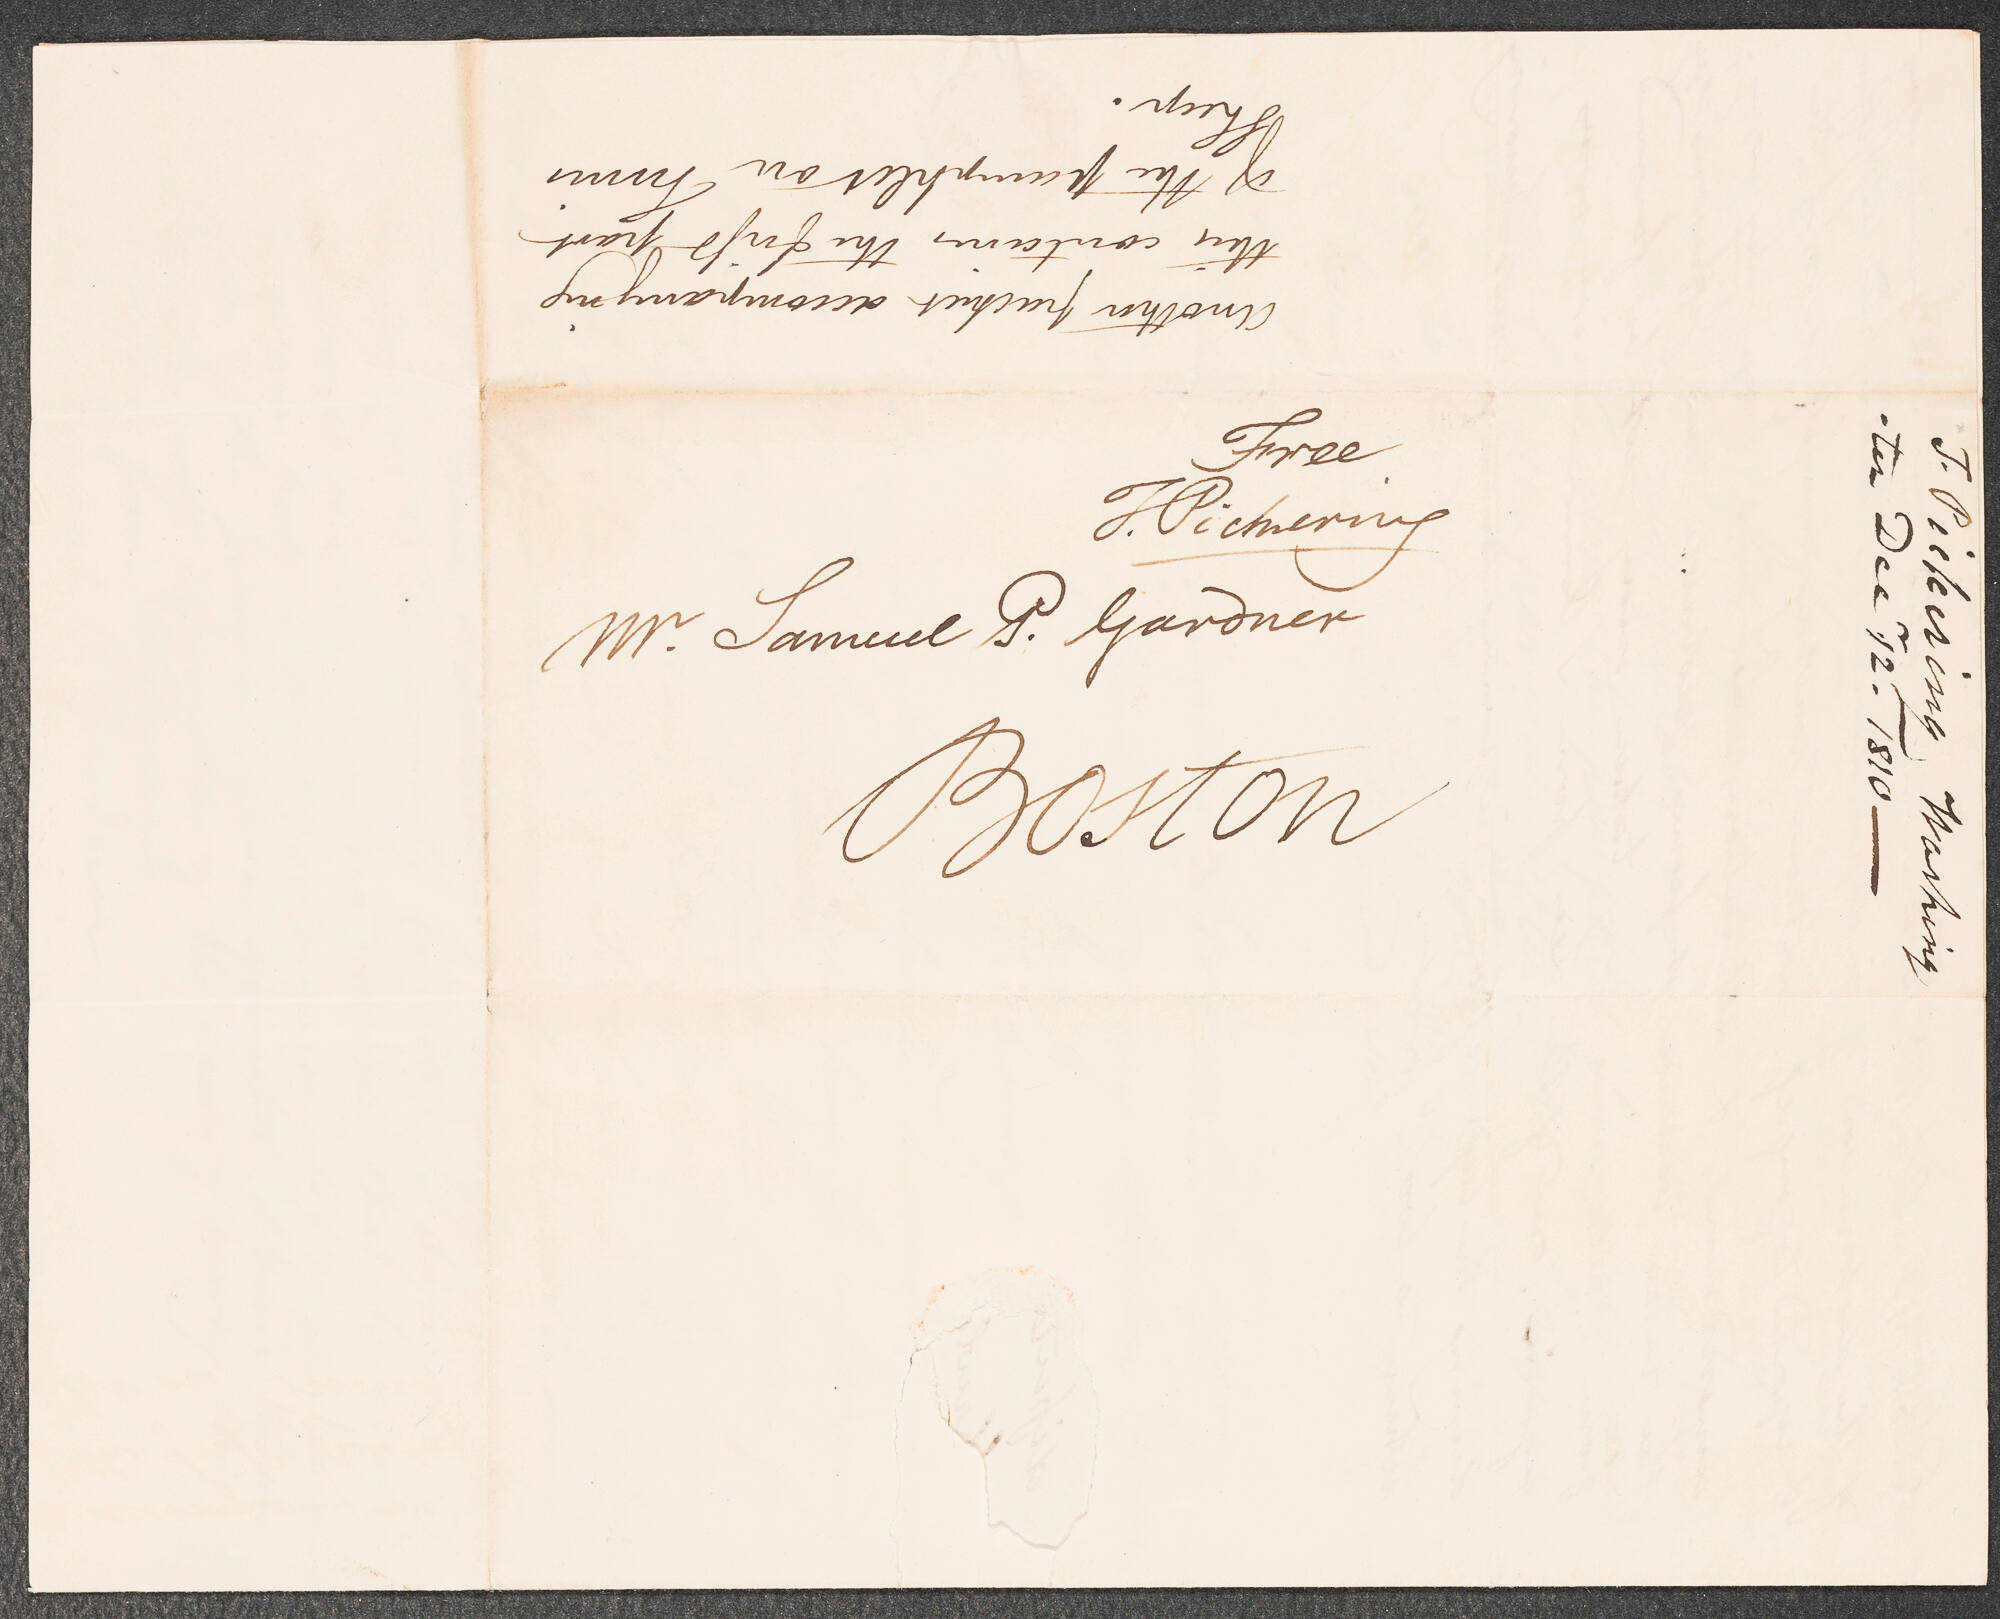 Another packet accompanying
this contains the first part
of the pamphlet on Fruit
Free
T. Pickering
Mr. Samuel P. Gardner
Boston
T. Pickering Washing
-ton Dec 12. 1810